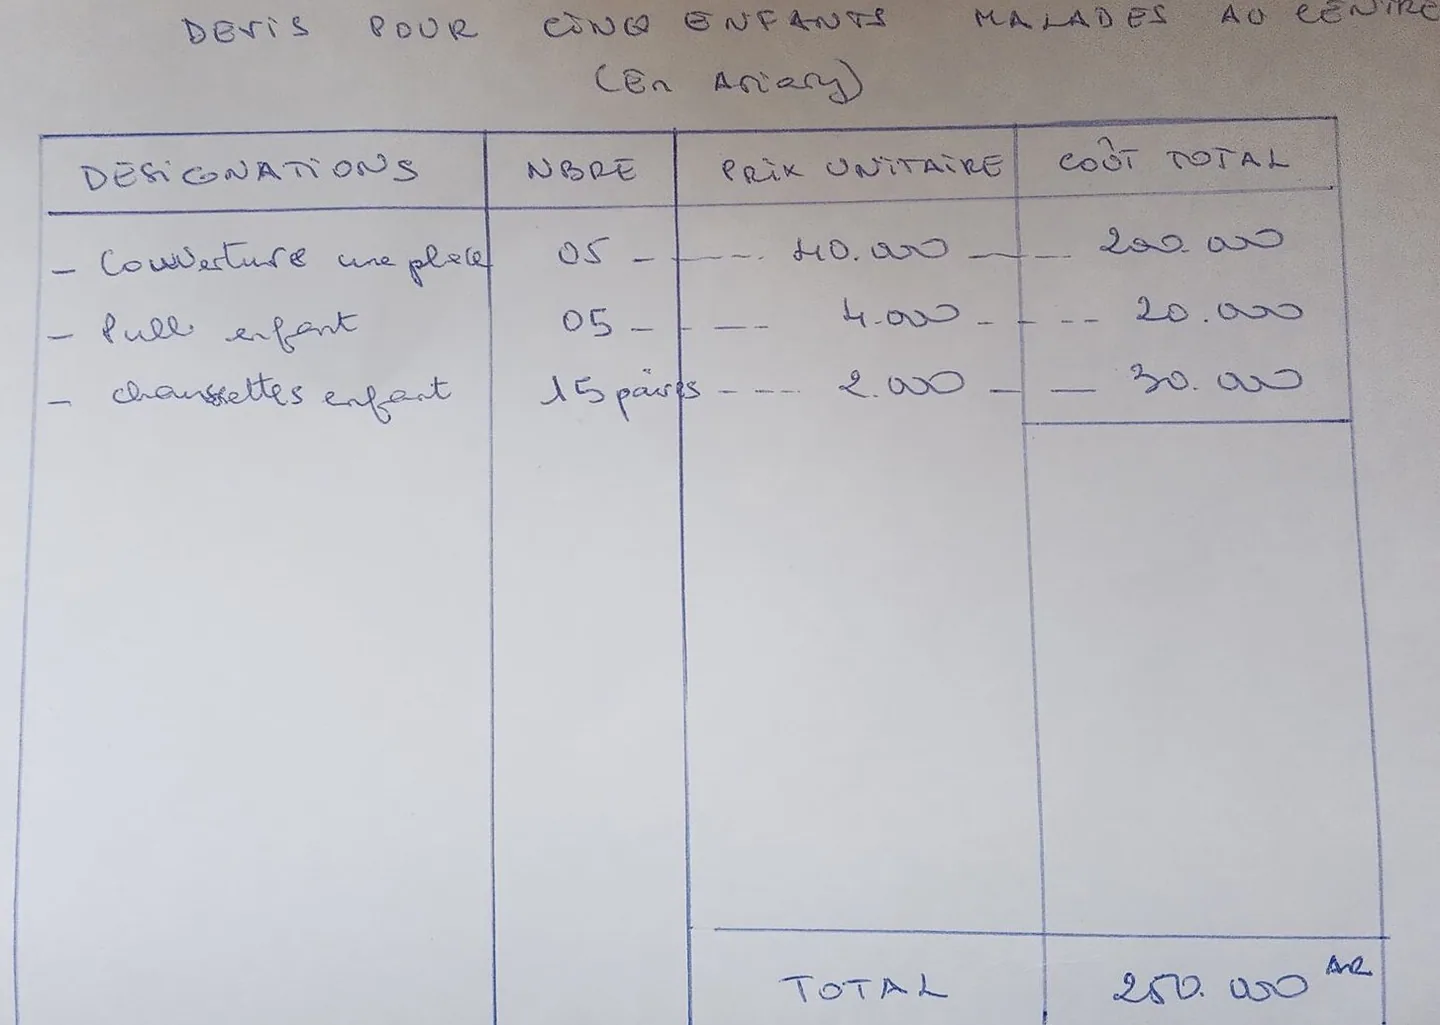 DEVIS POUR CINQ ENFANTS MALADES AU CENTRE
(En Ariary)
DESIGNATIONS NBRE PRIX UNITAIRE COÛT TOTAL
- Couverture une place 05 - ---- 40.000 - -- 200.000
- Pull enfant 05 - --- 4.000 - --- 20.000
- chaussettes enfant 15 paires ---- 2.000 - - 30.000
TOTAL 250.000 AR